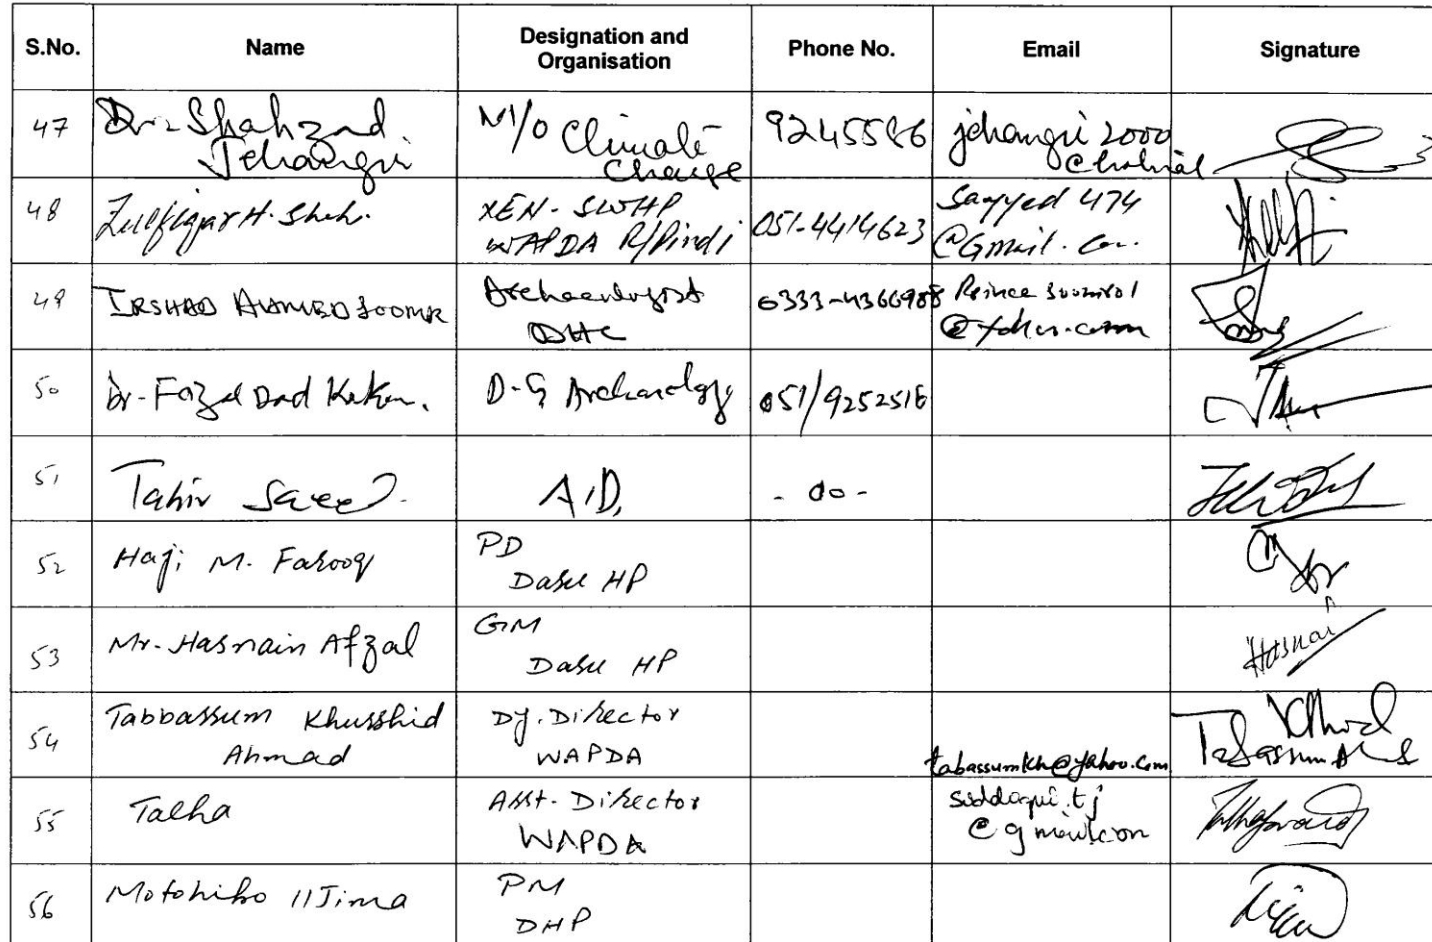 S.No. Name Designation and Organisation Phone No. Email Signature
47 Dr. Shahzad Jehangir M/o Climate Change 9245586 jehangri2000 @hotmail
48 Zulfiqar H. Shah. XEN - SWHP WAPDA R/Pindi 051-4414623 Sayyed 474 @Gmail.
49 IRSHAD AHMED SOOMR Archaeologist 0333-4366988 Prince soomro1
50 Dr-Fazal Dad Kakar. D-G Archaeology 051/9252516
51 Tahir Saeed. A.D, - do -
52 Haji M. Farooq PD Dasu HP
53 Mr. Hasnain Afzal GM Dasu HP Hasnai
54 Tabbassum Khurshid Ahmad Dy. Director WAPDA tabassumkh@yahoo.com
55 Talha Asst. Director WAPDA siddaqui.tj
56 Motohiko IIJima PM DHP